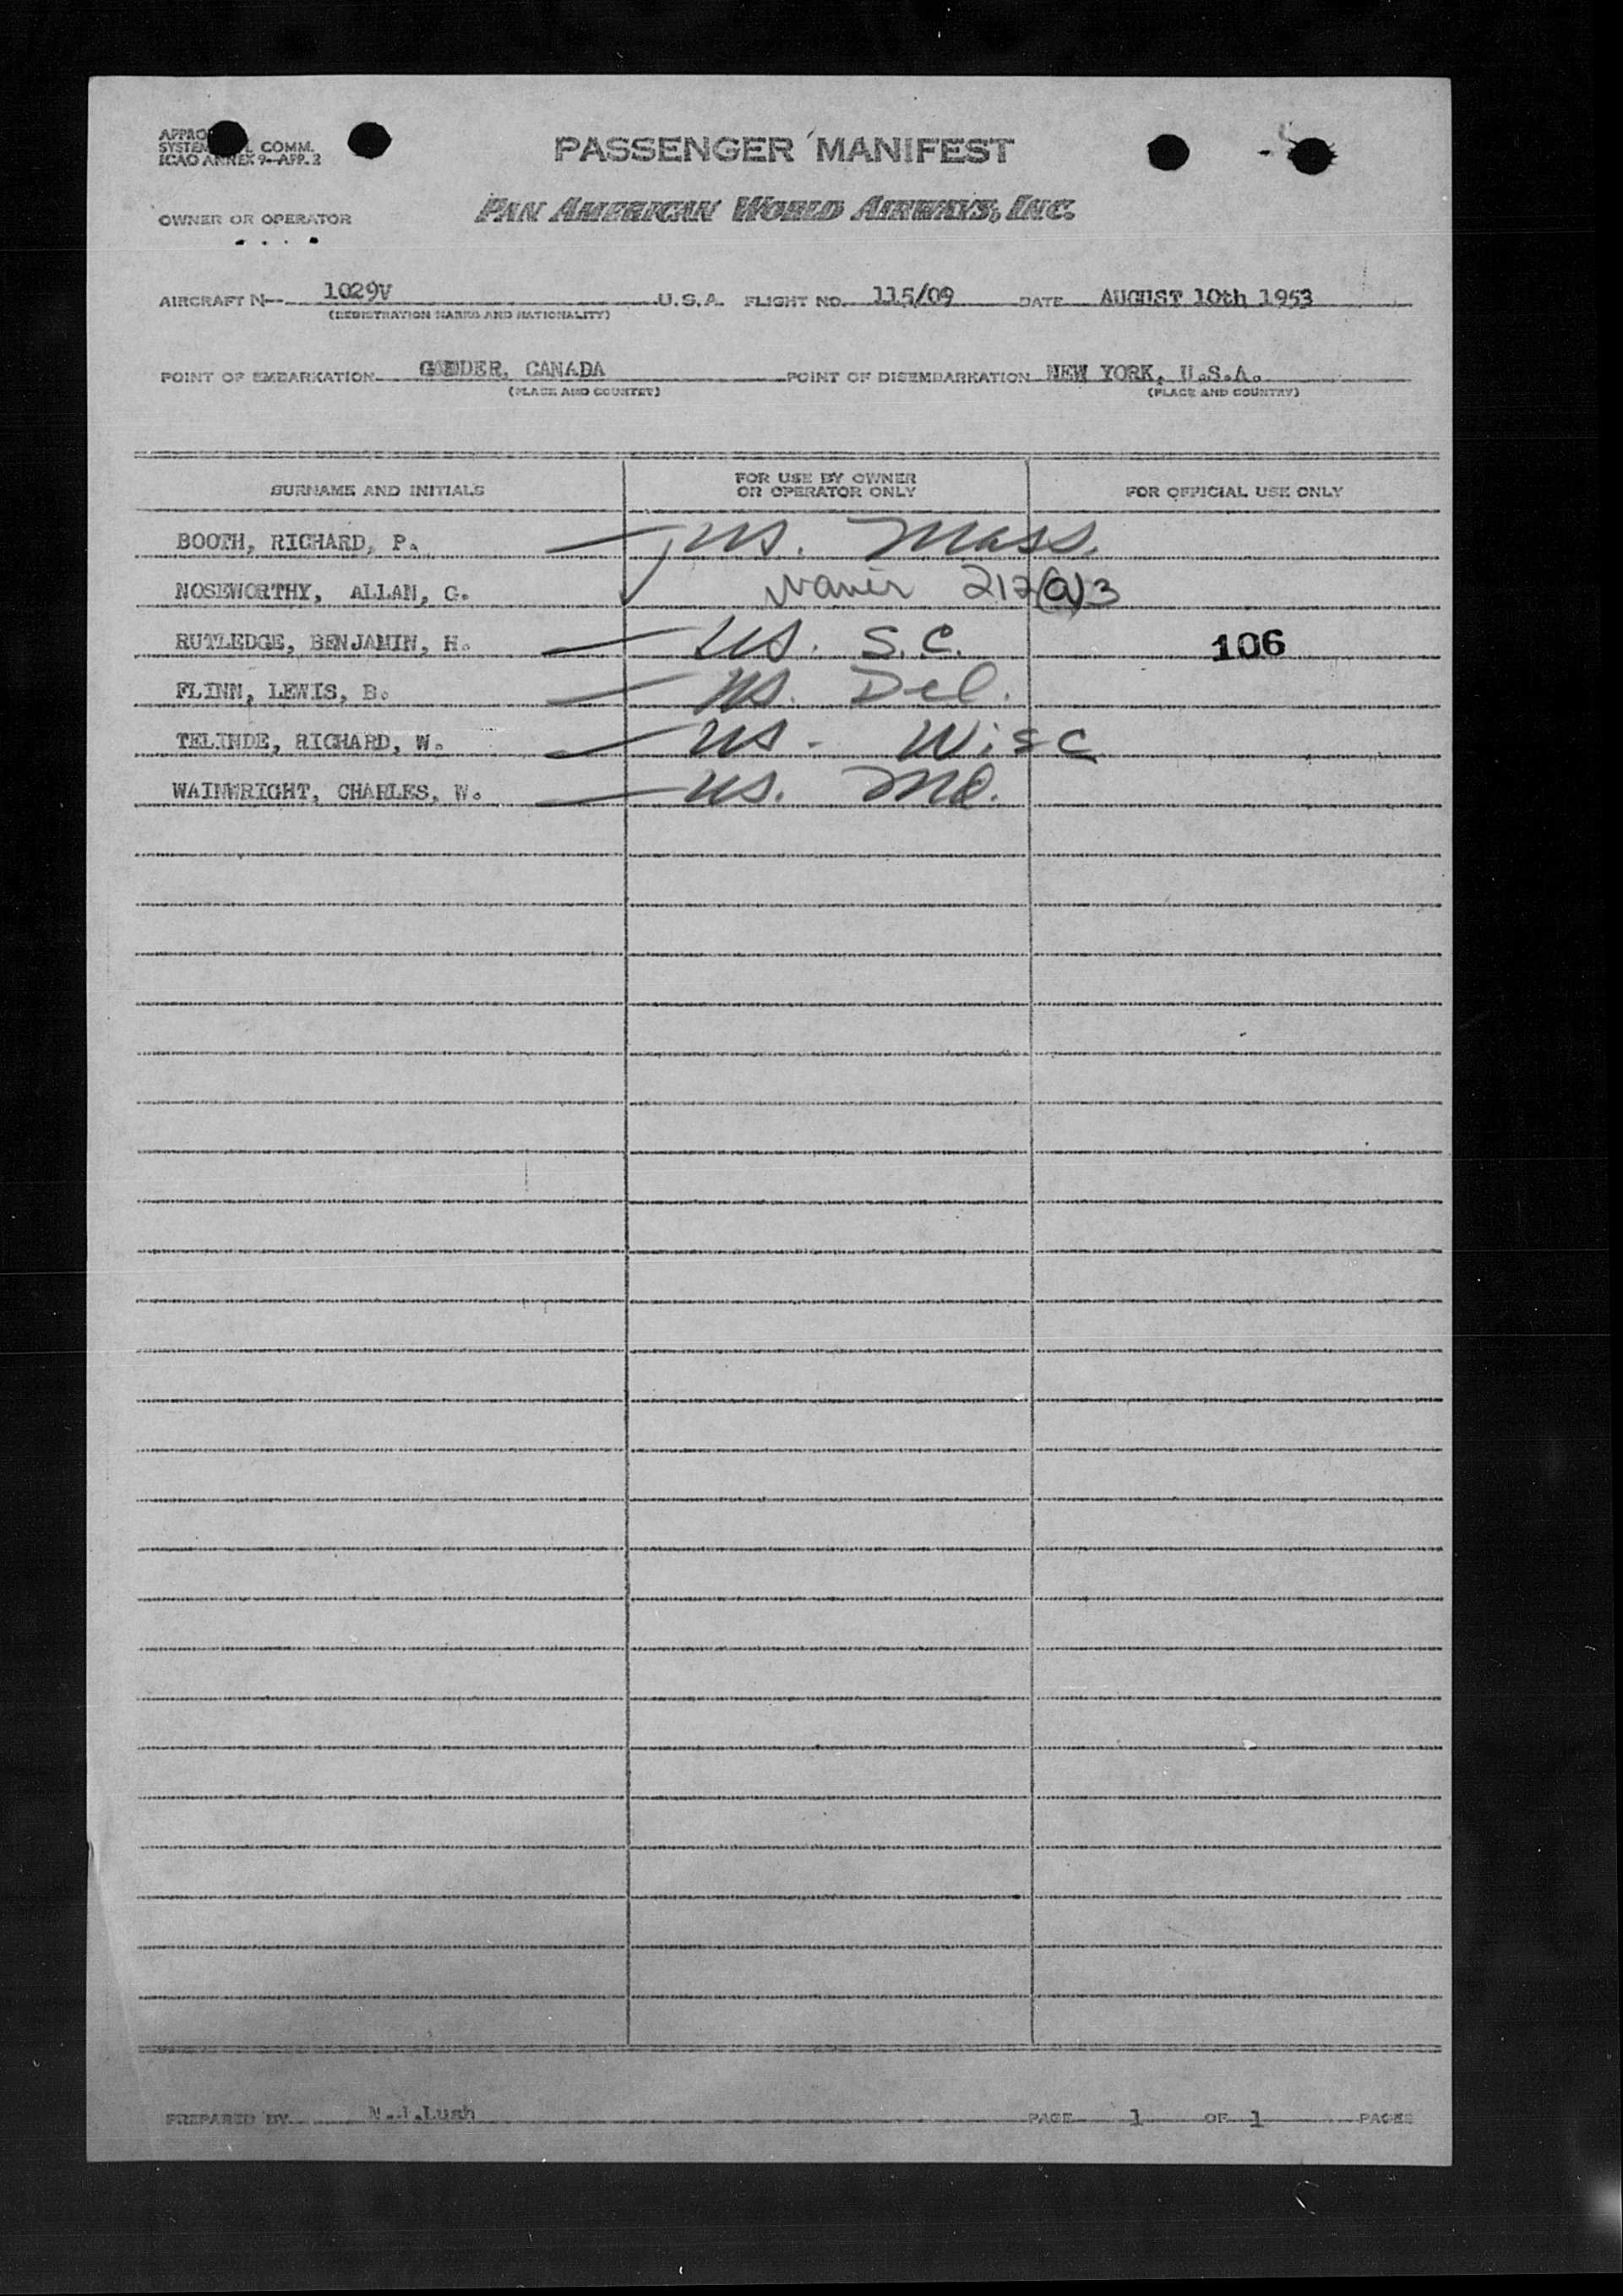 PASSENGER MANIFEST
COMM.
ICAO ANNEX 9-APP. 2
OWNER OR OPERATOR
PAN AMERICAN WORLD AIRWAYS, INC.
AIRCRAFT N- 1029V U.S.A. FLIGHT NO. 115/09 DATE AUGUST 10th 1953
(REGISTRATION MARKS AND NATIONALITY)
POINT OF EMBARKATION CANADA POINT OF DISEMBARKATION NEW YORK, U.S.A.
(PLACE AND COUNTRY) (PLACE AND COUNTRY)
SURNAME AND INITIALS FOR USE BY OWNER OR OPERATOR ONLY FOR OFFICIAL USE ONLY
BOOTH, RICHARD, P. US. Mass.
NOSEWORTHY, ALLAN, G. 212(a)3
RUTLEDGE, BENJAMIN, H. US. S.C. 106
FLINN, LEWIS, B. US. Del.
TELINDE, RICHARD, W. US. Wisc
WAINWRIGHT, CHARLES, W. US. Md.
PREPARED BY Lush PAGE 1 OF 1 PAGES